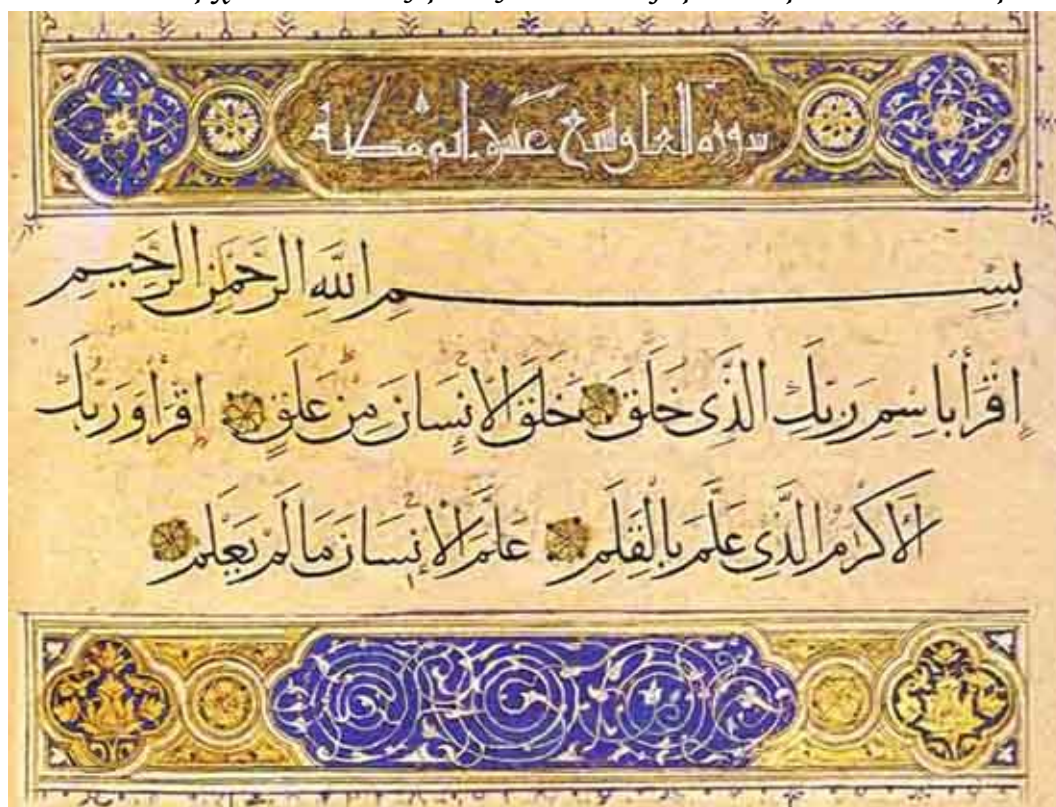 سورة العلق تسع عشرة اية مكية
بِسْمِ اللَّهِ الرَّحْمَٰنِ الرَّحِيمِ
إِقْرَأْ بِاسْمِ رَبِّكَ الَّذِى خَلَقَ خَلَقَ الْإِنسَانَ مِنْ عَلَقٍ إِقْرَأْ وَرَبُّكَ
الْأَكْرَمُ الَّذِى عَلَّمَ بِالْقَلَمِ عَلَّمَ الْإِنسَانَ مَا لَمْ يَعْلَمْ